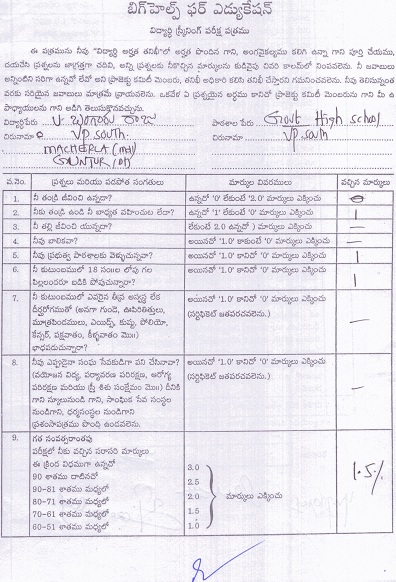 బిగ్‌హెల్ప్ ఫర్ ఎడ్యుకేషన్
విద్యార్థి స్క్రీనింగ్ పరీక్ష పత్రము
ఈ పత్రమును నీవు "విద్యార్థి అర్హత తనిఖీ"లో అర్హత పొందిన గాని, అంగవైకల్యము కలిగి ఉన్నా గాని పూర్తి చేయుము,
దయచేసి ప్రశ్నలను జాగ్రత్తగా చదివి, అన్ని ప్రశ్నలకు నీకొచ్చిన మార్కులను కుడివైపు చివరి కాలమ్‌లో నింపవలెను. నీ జవాబులు
అన్నింటిని సరిగా ఉన్నవో లేవో అని ప్రాజెక్టు కమిటీ మెంబరు, తనిఖీ అధికారి కలిసి తనిఖీ చేస్తారని గమనించవలెను. నీవు తెలిసినంతవరకు
సరియైన జవాబులు మాత్రమే వ్రాయవలెను. ఒకవేళ ఏ ప్రశ్నయైన అర్థము కానిచో ప్రాజెక్టు కమిటీ మెంబరును గాని మీ
ఉపాధ్యాయులను గాని అడిగి తెలుసుకొనవచ్చును.
విద్యార్థిపేరు పాఠశాల పేరు Govt High school
చిరునామా V.P. South. చిరునామా V.P. South
MACHERLA (md)
GUNTUR (Dt)
వ.నెం. ప్రశ్నలు మరియు పరిపోత సంగతులు మార్కుల వివరములు వచ్చిన మార్కులు
1. నీ తండ్రి జీవించి ఉన్నాడా? ఉన్నచో '0' లేకుంటే '2.0' మార్కులు ఎక్కించు 0
2. నీకు తండ్రి ఉండి నీ బాధ్యత వహించుట లేదా? ఉన్నచో '1' లేకుంటే '0' మార్కులు ఎక్కించు 1
3. నీ తల్లి జీవించి యున్నదా? లేకుంటే 2.0 ఉన్నచో 0 మార్కులు ఎక్కించు –
4. నీవు బాలికవా? అయినచో '1.0' కాకుంటే '0' మార్కులు ఎక్కించు –
5. నీవు ప్రభుత్వ పాఠశాలకు వెళ్ళుచున్నవా? అయినచో '1.0' కానిచో '0' మార్కులు ఎక్కించు 1
6. నీ కుటుంబములో 18 సం॥ల లోపు గల అయినచో '1.0' కానిచో '0' మార్కులు ఎక్కించు 1
పిల్లలందరూ బడికి పోవుచున్నారా?
7. నీ కుటుంబములో ఎవరైన తీవ్ర అస్వస్థ లేక అయినచో '1.0' కానిచో '0' మార్కులు ఎక్కించు –
దీర్ఘరోగముతో (అనగా గుండె, ఊపిరితిత్తులు, (సర్టిఫికెట్ జతపరచవలెను.)
మూత్రపిండములు, ఎయిడ్స్, కుష్ఠు, పోలియో,
కేన్సర్, పక్షవాతం, కీళ్ళవాతం మొ॥)
భాధపడుచున్నారా?
8. నీవు ఎప్పుడైనా సంఘ సేవకుడిగా పని చేసినావా? అయినచో '1.0' కానిచో '0' మార్కులు ఎక్కించు –
(వయోజన విద్య, పర్యావరణ పరిరక్షణ, ఆరోగ్య (సర్టిఫికెట్ జతపరచవలెను.)
పరిరక్షణ మరియు స్త్రీ శిశు సంక్షేమం మొ॥) దీనికి
గాని స్కూలునుండి గాని, సాంఘిక సేవ సంస్థల
నుండిగాని, ధర్మసంస్థల నుండిగాని
ప్రశంసాపత్రము పొంది ఉండవలెను.
9. గత సంవత్సరాంతపు
పరీక్షలో నీకు వచ్చిన సరాసరి మార్కులు
ఈ క్రింది విధముగా ఉన్నచో 3.0
90 శాతము దాటినచో 2.5
90-81 శాతము మధ్యలో 2.0 మార్కులు ఎక్కించు 1.5%
80-71 శాతము మధ్యలో 1.5
70-61 శాతము మధ్యలో 1.0
60-51 శాతము మధ్యలో